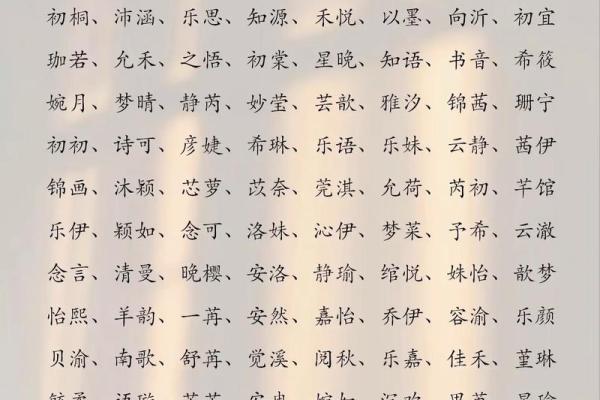 初桐、沛涵、乐思、知源、禾悦、以墨、向沂、初宜
珈若、允禾、之悟、初棠、星晚、知语、书音、希筱
婉月、梦晴、静芮、妙莹、芸歆、雅汐、锦茜、珊宁
初初、诗可、彦婕、希琳、乐语、乐妹、云静、茜伊
锦画、沐颖、芯萝、苡奈、莞淇、允荷、芮初、芊馆
乐伊、颖如、念可、洛妹、沁伊、梦菜、予希、云澈
念言、清曼、晚樱、安洛、静瑜、绾悦、姝怡、歆梦
怡熙、羊韵、一苒、安然、嘉怡、乔伊、容渝、乐颜
贝渝、南歌、舒苒、觉溪、阅秋、乐嘉、佳禾、堇琳